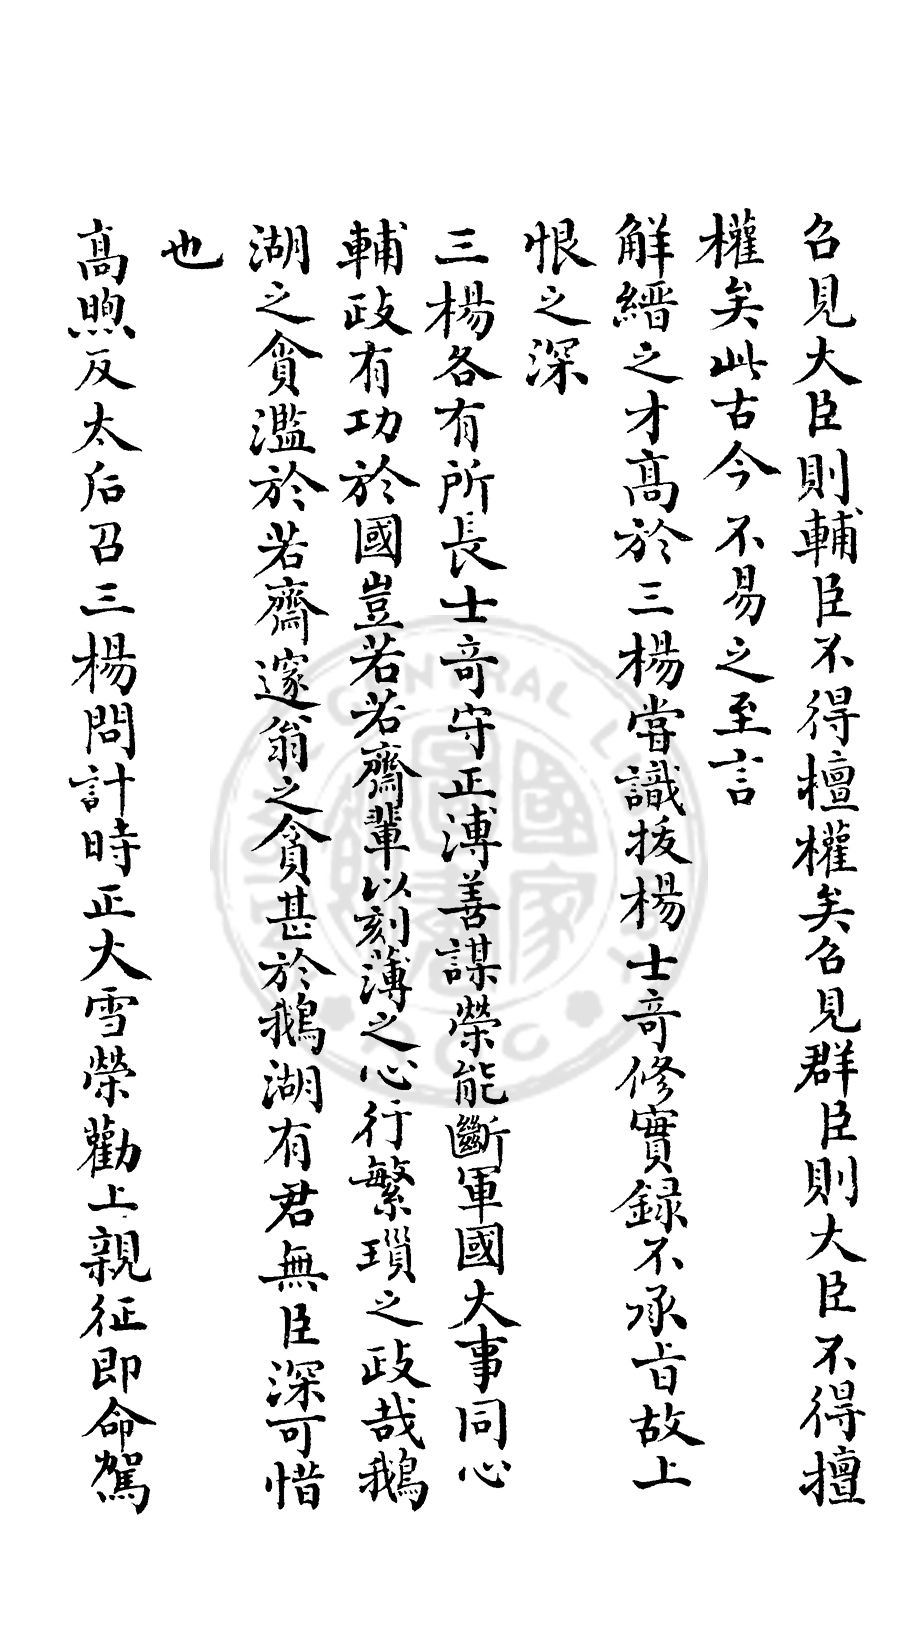 召見大臣則輔臣不得擅權矣召見群臣則大臣不得擅
權矣此古今不易之至言
解縉之才高於三楊嘗識拔楊士竒修實録不承旨故上
恨之深
三楊各有所長士竒守正溥善謀榮能斷軍國大事同心
輔政有功於國豈若若齋輩以刻薄之心行繁瑣之政哉鵝
湖之貪濫於若齋邃翁之貪甚於鵝湖有君無臣深可惜
也
高煦反太后召三楊問計時正大雪榮勸上親征即命駕
CENTRAL LI
國家圖書館